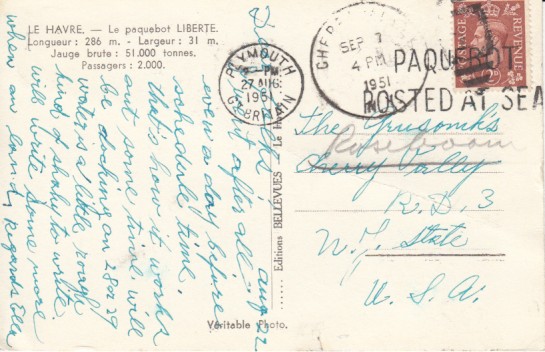 LE HAVRE. — Le paquebot LIBERTE.
Longueur : 286 m. - Largeur : 31 m.
Jauge brute : 51.000 tonnes.
Passagers : 2.000.
PLYMOUTH
27 AUG
1951
GT. BRITAIN
SEP 7
4 PM
1951
PAQUEBOT
POSTED AT SEA
POSTAGE REVENUE
Aug 22
went after all -
even a day before
schedule time.
That's how it works
out some time. Will
be docking on 28 or 29
water is a little rough
kind of hard to write.
will write some more
when on land, regards Ella
Editions BELLEVUES Le Havre
Véritable Photo.
The
Roseboom
Cherry Valley
R.D. 3
N.Y. State
U.S.A.